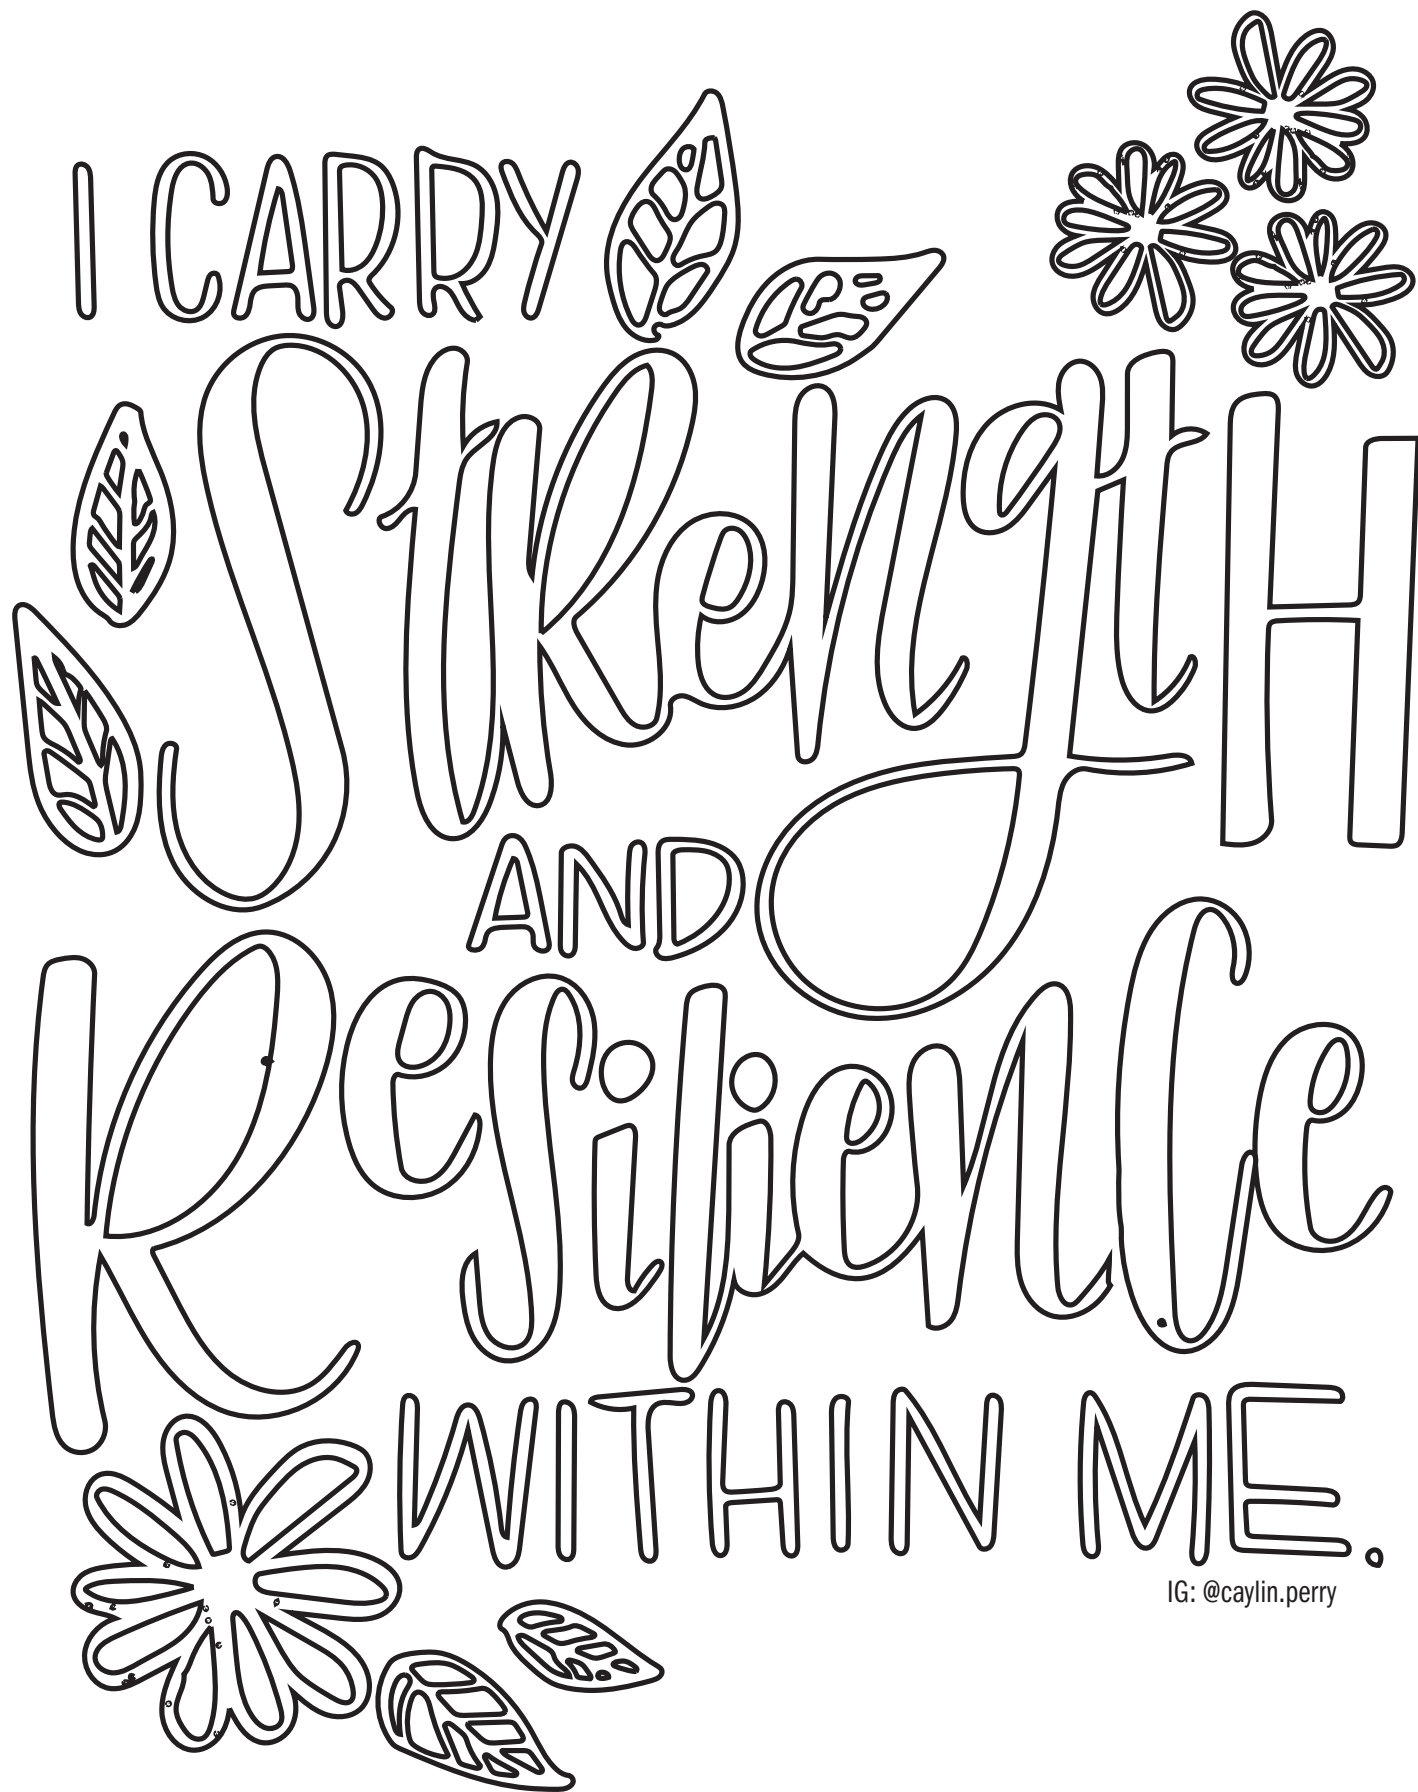 I CARRY
StRengtH
AND
ResilienCe
WITHIN ME.
IG: @caylin.perry